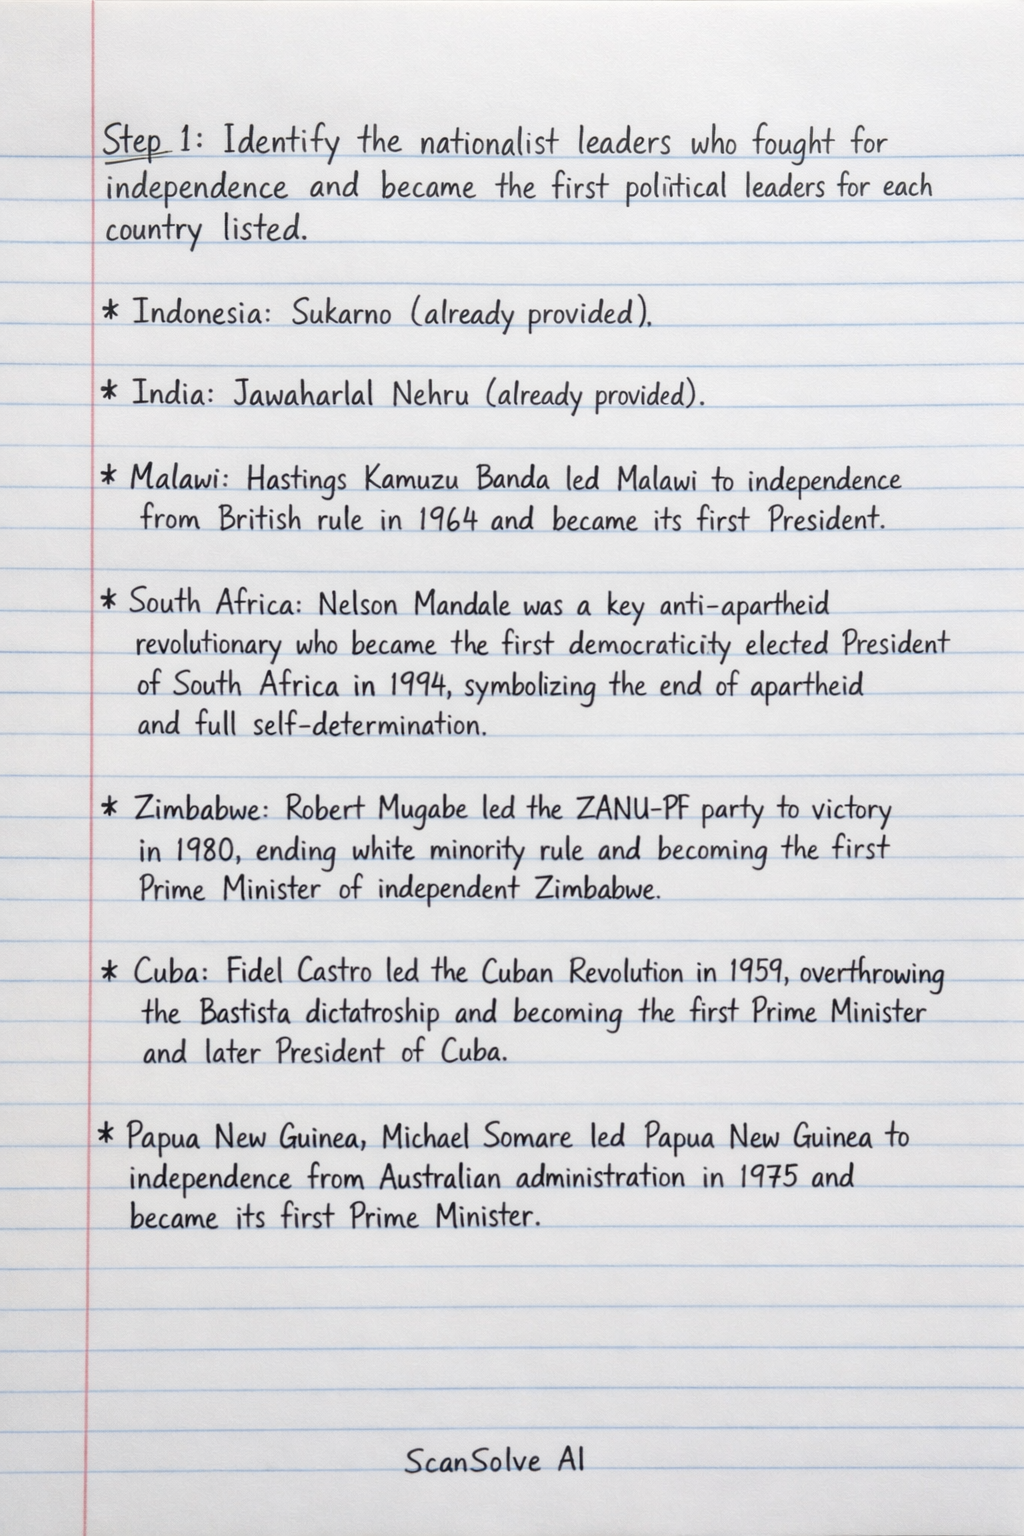 Step 1: Identify the nationalist leaders who fought for
independence and became the first political leaders for each
country listed.
* Indonesia: Sukarno (already provided).
* India: Jawaharlal Nehru (already provided).
* Malawi: Hastings Kamuzu Banda led Malawi to independence
from British rule in 1964 and became its first President.
* South Africa: Nelson Mandale was a key anti-apartheid
revolutionary who became the first democraticity elected President
of South Africa in 1994, symbolizing the end of apartheid
and full self-determination.
* Zimbabwe: Robert Mugabe led the ZANU-PF party to victory
in 1980, ending white minority rule and becoming the first
Prime Minister of independent Zimbabwe.
* Cuba: Fidel Castro led the Cuban Revolution in 1959, overthrowing
the Bastista dictatroship and becoming the first Prime Minister
and later President of Cuba.
* Papua New Guinea, Michael Somare led Papua New Guinea to
independence from Australian administration in 1975 and
became its first Prime Minister.
ScanSolve AI